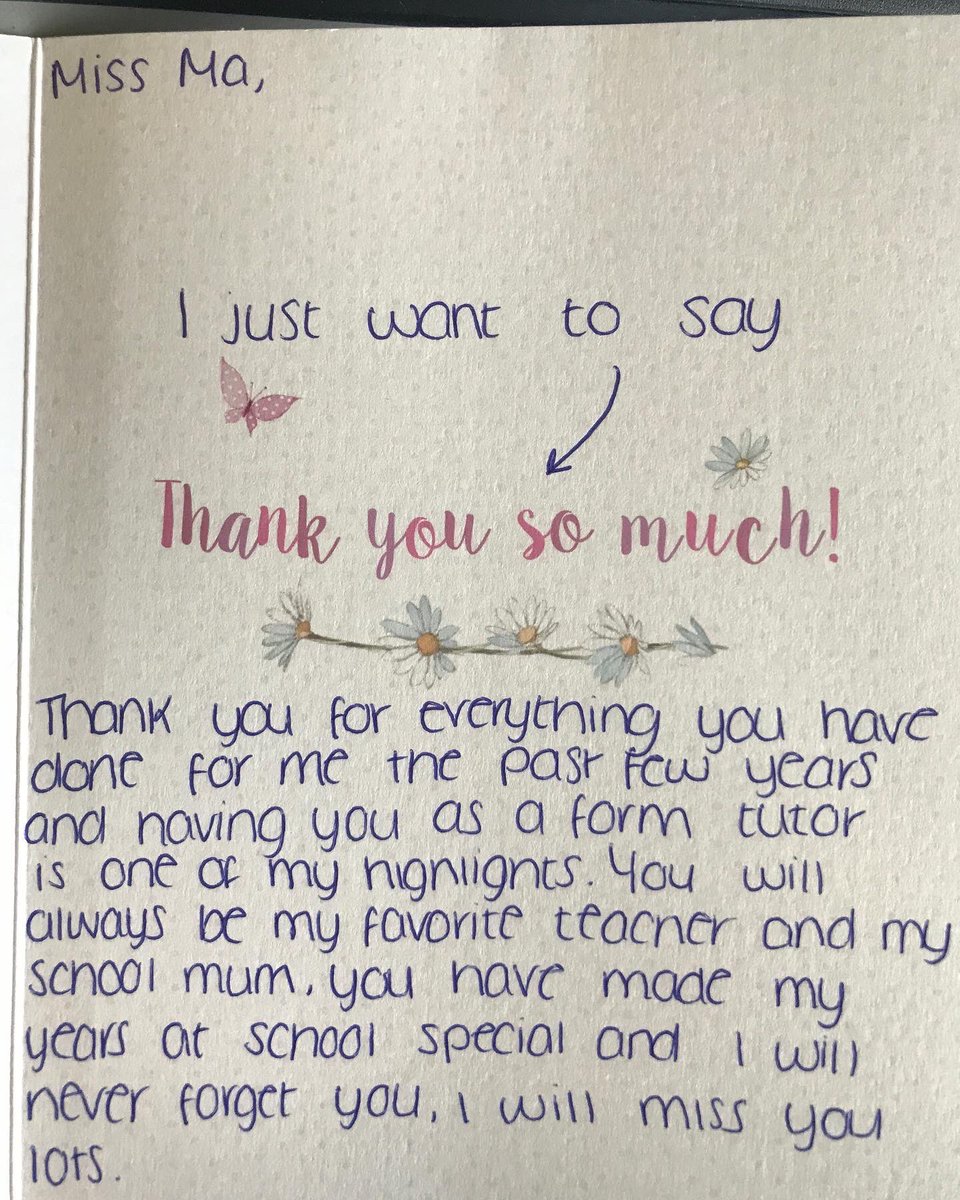 Miss Ma,
I just want to say
Thank you so much!
Thank you for everything you have
done for me the past few years
and having you as a form tutor
is one of my highlights. You will
always be my favorite teacher and my
school mum, you have made my
years at school special and I will
never forget you, I will miss you
lots.